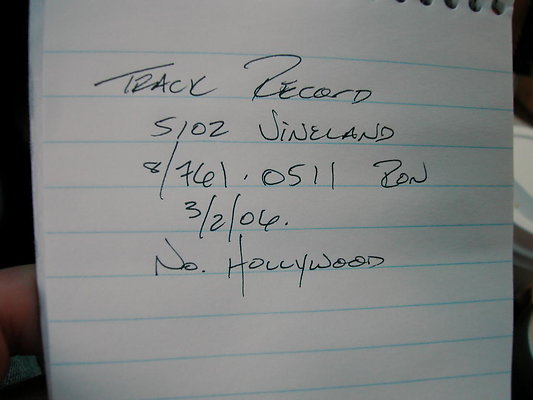 Track Record
5102 Vineland
8/761.0511 Ron
3/2/06.
No. Hollywood